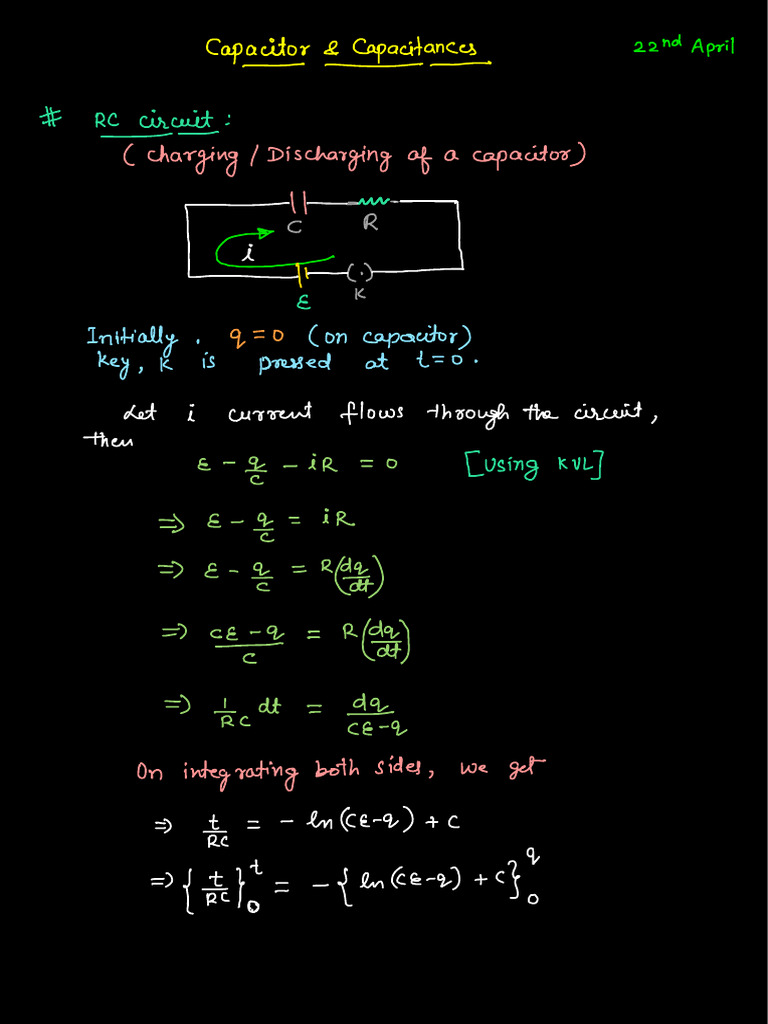 Capacitor & Capacitances
22nd April
# RC circuit :
( Charging / Discharging of a capacitor)
C R
i
ε K
Initially . q = 0 (on capacitor)
key, K is pressed at t = 0 .
Let i current flows through the circuit,
then
ε - q/C - iR = 0 [Using KVL]
⇒ ε - q/C = iR
⇒ ε - q/C = R(dq/dt)
⇒ (Cε - q)/C = R(dq/dt)
⇒ 1/RC dt = dq/(Cε-q)
On integrating both sides, we get
⇒ t/RC = - ln(Cε-q) + C
⇒ {t/RC}₀ᵗ = - {ln(Cε-q) + C}₀^q